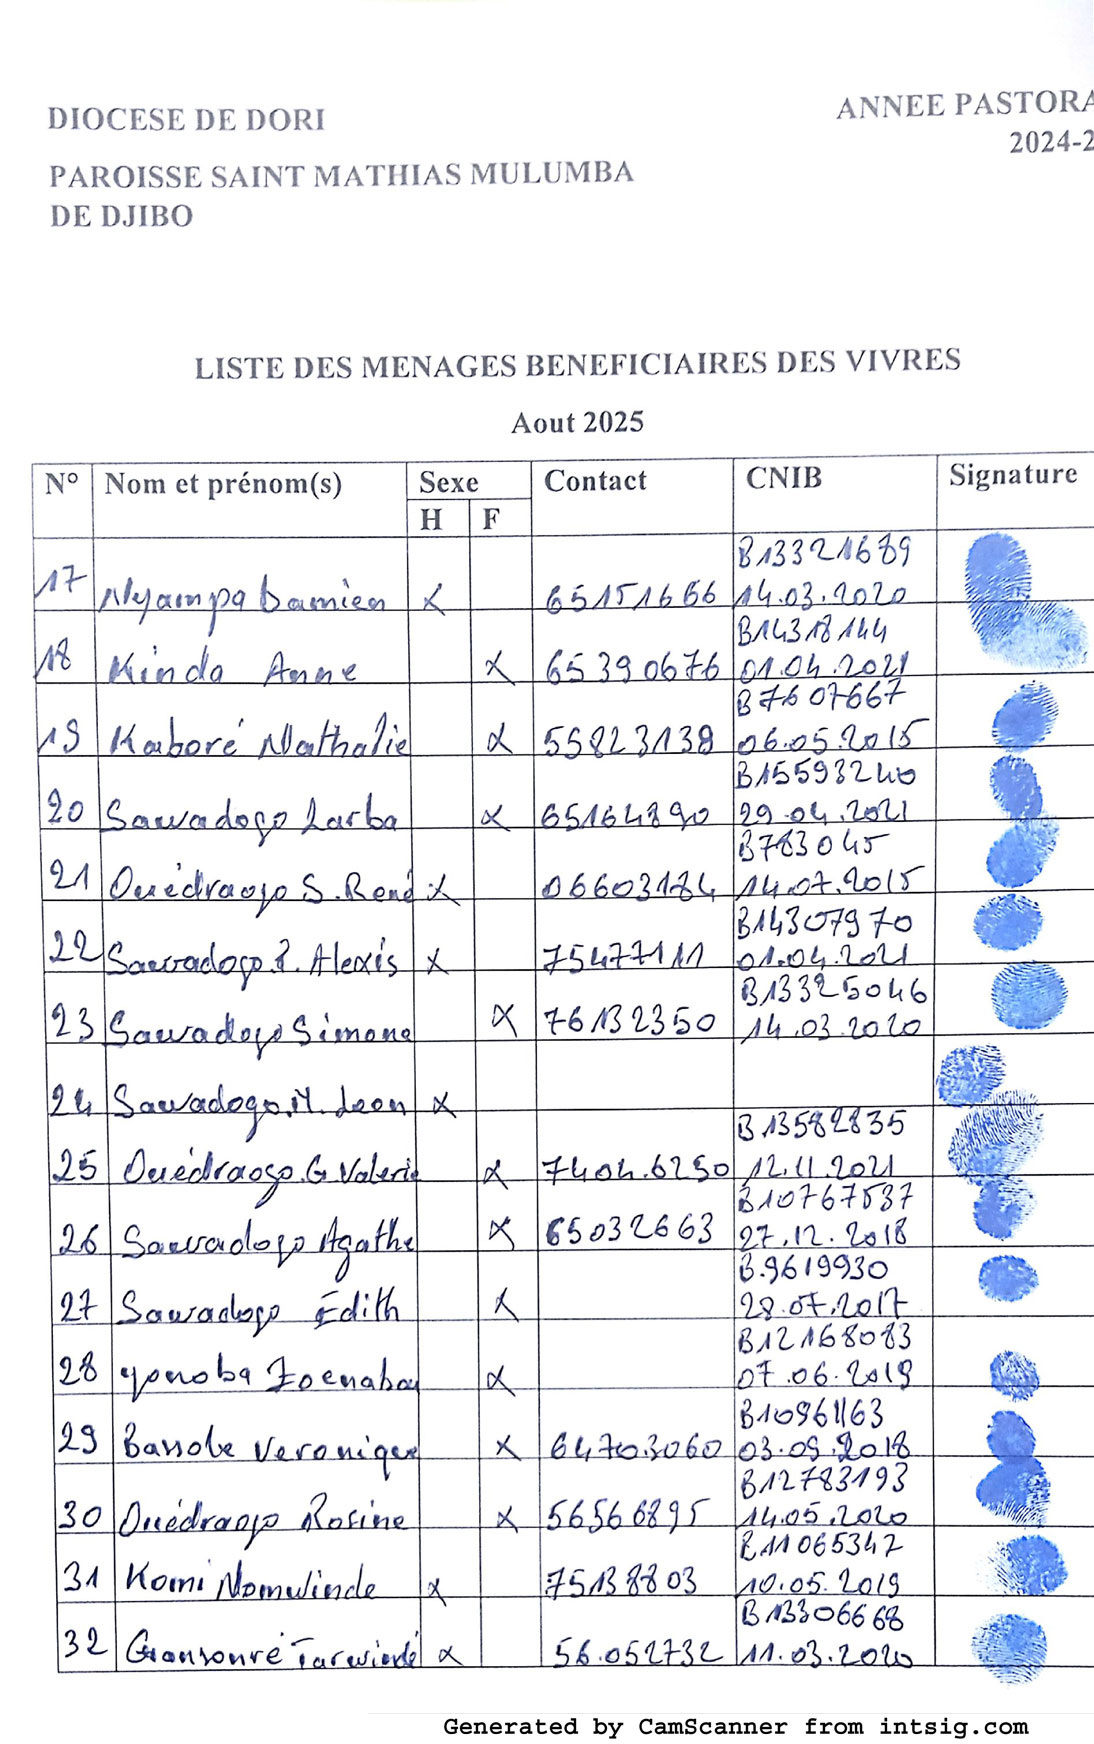 DIOCESE DE DORI
ANNEE PASTORA
2024-2
PAROISSE SAINT MATHIAS MULUMBA
DE DJIBO
LISTE DES MENAGES BENEFICIAIRES DES VIVRES
Aout 2025
N° Nom et prénom(s) Sexe Contact CNIB Signature
H F
B13321689
17 Nyampa Damien x 65151666 14.03.2020
B14318144
18 Kinda Anne x 65390676 01.04.2021
B7607667
19 Kaboré Nathalie x 55823139 06.05.2015
B15593240
20 Sawadogo Larba x 65164890 29.04.2021
B783045
21 Ouédraogo S. René x 06603184 14.07.2015
B14307970
22 Sawadogo P. Alexis x 75477111 01.04.2021
B13325046
23 Sawadogo Simone x 76132350 14.03.2020
24 Sawadogo M. Leon x
B13582835
25 Ouédraogo G. Valerie x 7404.6250 12.11.2021
B10767537
26 Sawadogo Agathe x 65032663 27.12.2018
B.9619930
27 Sawadogo Edith x 28.07.2017
B12168083
28 yonoba Zoenabou x 07.06.2019
B10961163
29 Bassole Veronique x 64703060 03.09.2018
B12783193
30 Ouédraogo Rosine x 56566895 14.05.2020
B11065347
31 Komi Nomwinde x 75138803 10.05.2019
B13306668
32 Gansonré Tarwindé x 56.052732 11.03.2020
Generated by CamScanner from intsig.com